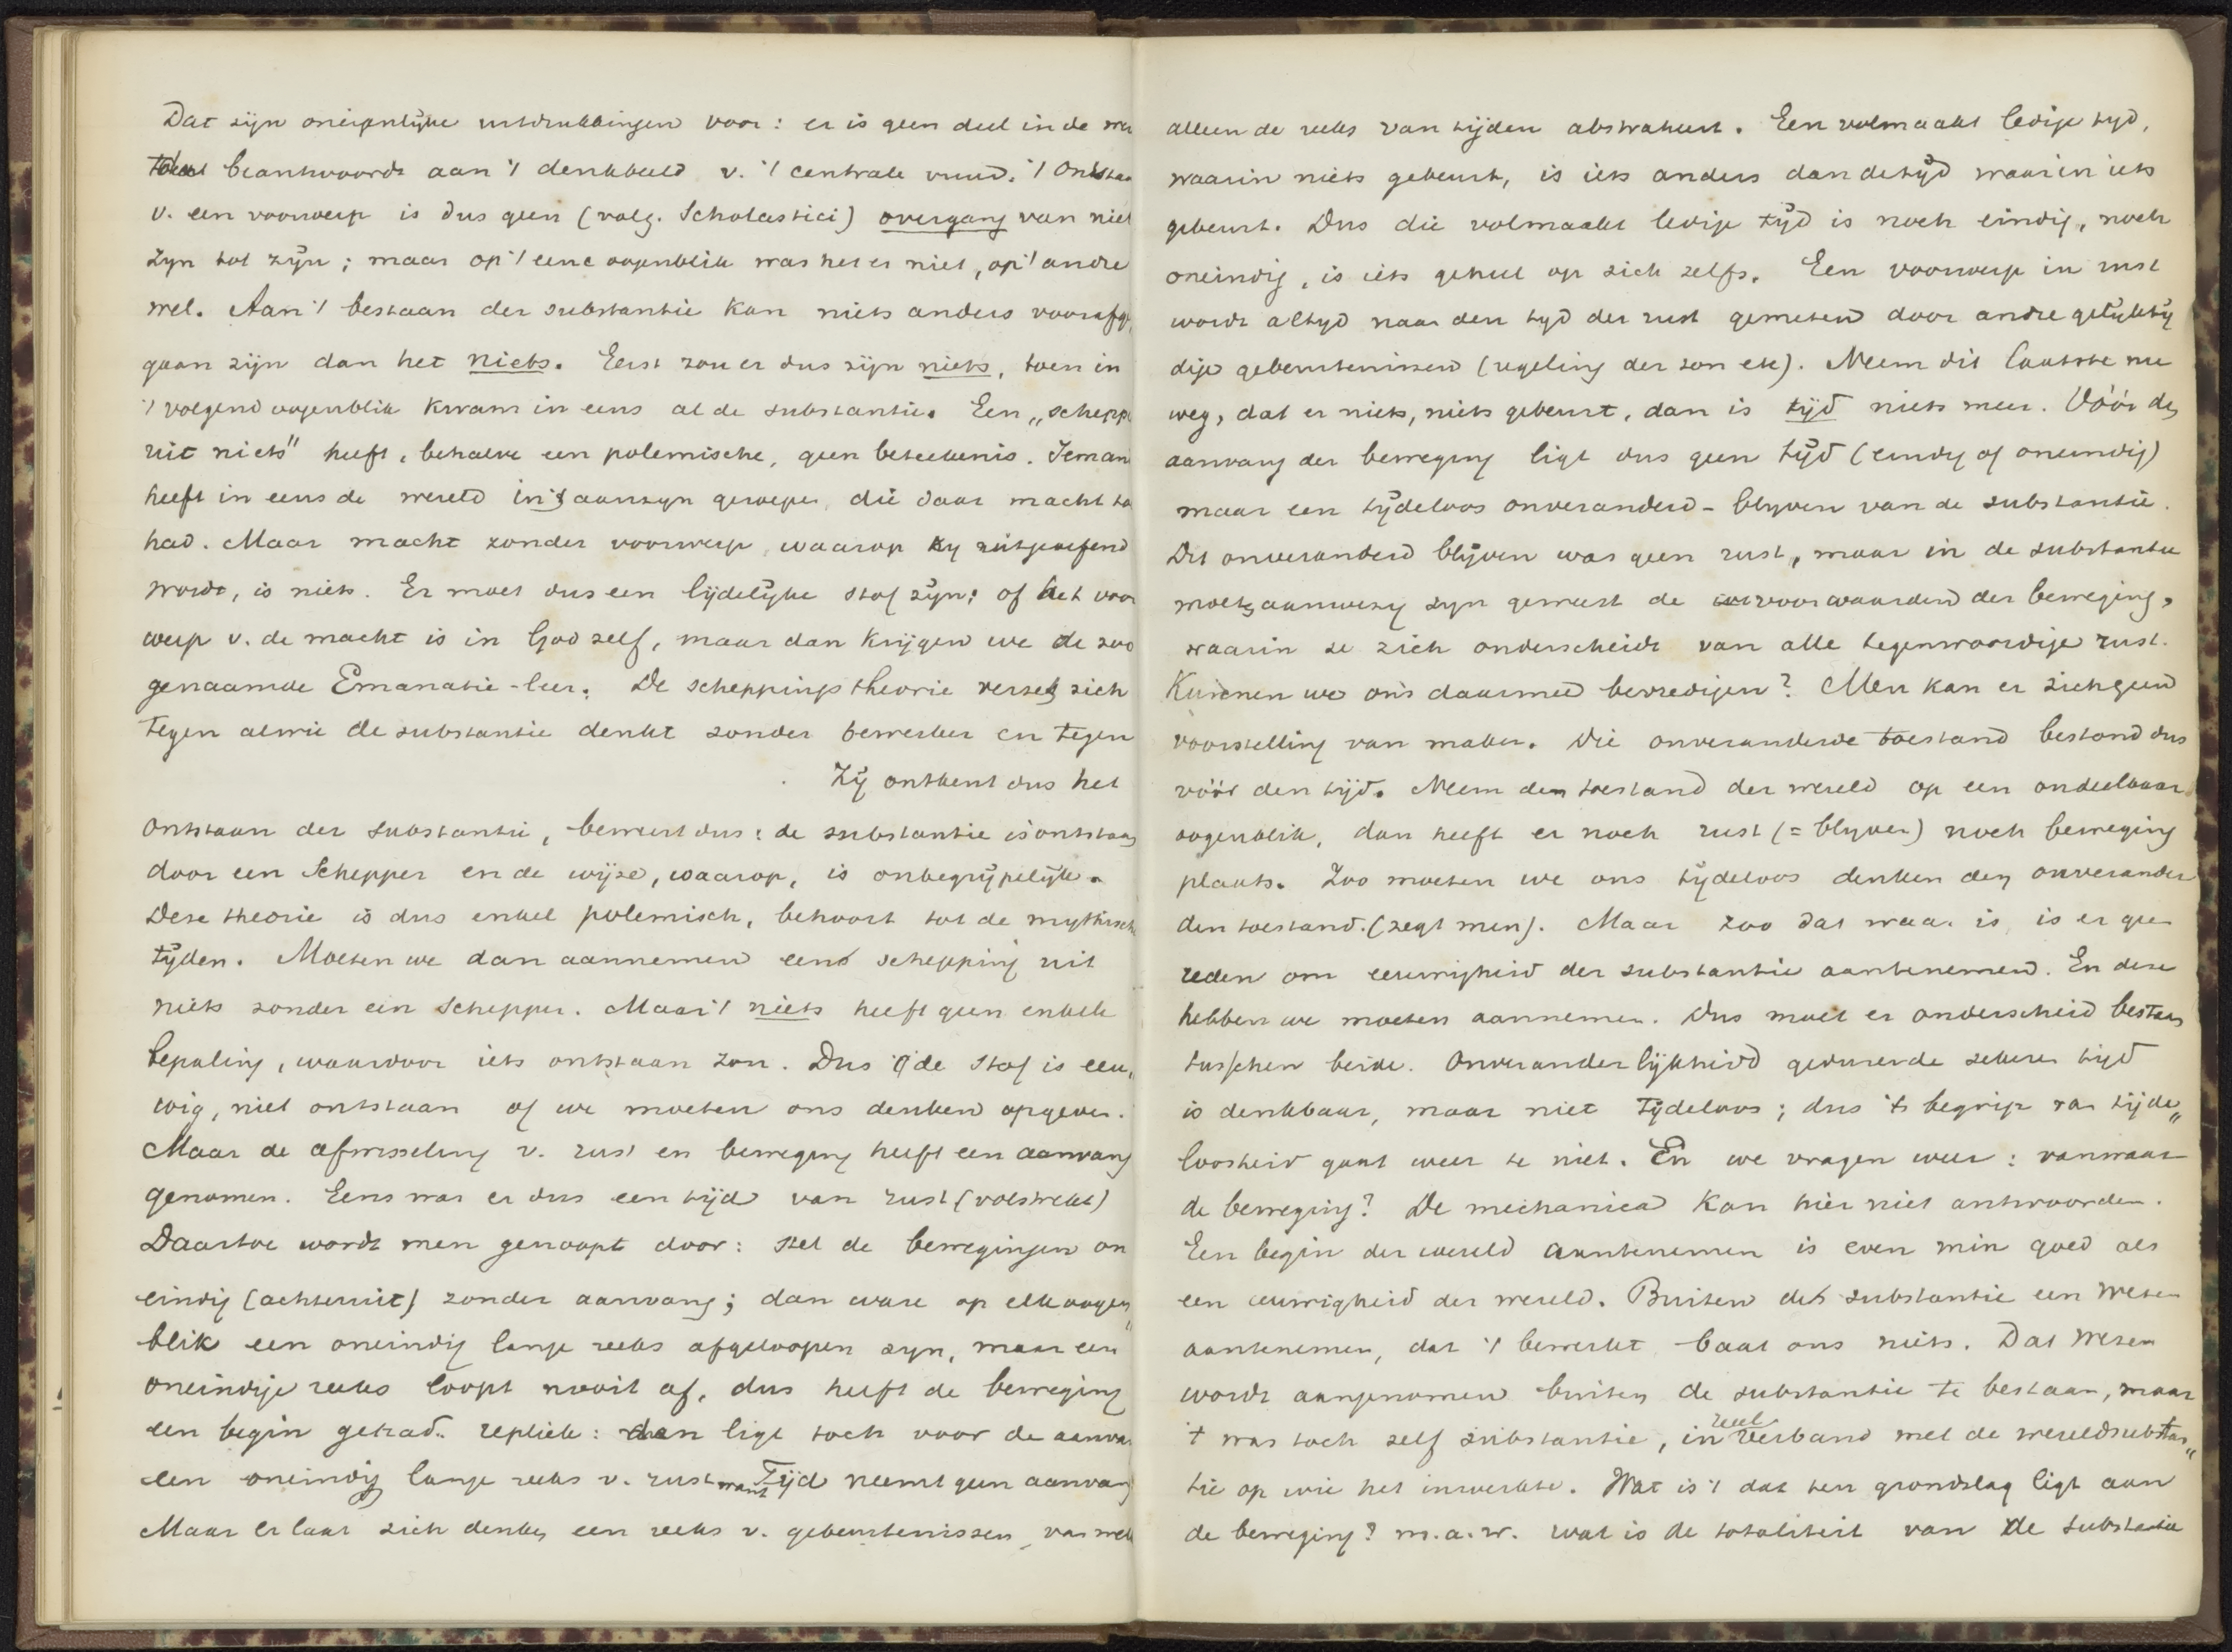 Dat zijn oneigenlijke uitdrukkingen voor: er is geen deel in de
beantwoordt aan 't denkbeeld v. 't centrale vuur. 't Ontstaan
v. een voorwerp is dus geen (volg. Scholastici) overgang van niet
zyn tot zyn; maar op 't eene oogenblik was het er niet, op 't andre
wel. Aan 't bestaan der substantie kan niets anders voorafge,
gaan zijn dan het niets. Eerst zou er dus zijn niets, toen in
't volgend oogenblik kwam in eens al de substantie. Een „schepp
uit niets" heeft, behalve een polemische, geen beteekenis. Ieman
heeft in eens de wereld in 't aanzyn geroepen, die daar macht to
had. Maar macht zonder voorwerp, waarop zy uitgeoefend
wordt, is niets. Er moet dus een lijdelijke stof zijn; of het voor
werp v. de macht is in God zelf, maar dan krijgen we de zoo
genaamde Emanatie-leer. De scheppingstheorie verzet zich
tegen alwie de substantie denkt zonder bewerker en tegen
Zij ontkent dus het
ontstaan der substantie, beweert dus: de substantie is ontstaan
door een Schepper en de wijze, waarop, is onbegrijpelijk.
Deze theorie is dus enkel polemisch, behoort tot de mythische
tijden. Moeten we dan aannemen eene schepping uit
niets zonder een Schepper. Maar 't niets heeft geen enkele
bepaling, waardoor iets ontstaan zou. Dus of de stof is eeu„
wig, niet ontstaan of we moeten ons denken opgeven.
Maar de afwisseling v. rust en beweging heeft een aanvang
genomen. Eens was er dus een tijd van rust (volstrekt)
Daartoe wordt men genoopt door: stel de bewegingen on
eindig (achteruit) zonder aanvang; dan ware op elk oogen„
blik een oneindig lange reeks afgeloopen zyn, maar een
oneindige reeks loopt nooit af, dus heeft de beweging
een begin gehad. repliek: dan ligt toch voor de aanva
een oneindig lange reeks v. rust want Tijd neemt geen aanvang
Maar er laat zich denken een reeks v. gebeurtenissen, van welk
alleen de reeks van tijden abstraheert. Een volmaakt ledige tyd,
waarin niets gebeurt, is iets anders dan de tijd waarin iets
gebeurt. Dus die volmaakt ledige tijd is noch eindig, noch
oneindig, is iets geheel op zich zelfs. Een voorwerp in rust
wordt altyd naar den tyd der rust gemeten door andre gelijktij
dige gebeurtenissen (regeling der zon etc). Neem dit laatste nu
weg, dat er niets, niets gebeurt, dan is tijd niets meer. Vóór den
aanvang der beweging ligt dus geen tijd (eindig of oneindig)
maar een tijdeloos onveranderd-blyven van de substantie.
Dit onveranderd blijven was geen rust, maar in de substantie
moet aanwezig zyn geweest de voorwaarden der beweging,
waarin ze zich onderscheidt van alle tegenwoordige rust.
Kunnen we ons daarmee bevredigen? Men kan er zich geen
voorstelling van maken. Die onveranderde toestand bestond dus
vóór den tijd. Neem den toestand der wereld op een ondeelbaar
oogenblik, dan heeft er noch rust (= blyven) noch beweging
plaats. Zoo moeten we ons tijdeloos denken den onverander
den toestand. (zegt men). Maar zoo dat waar is, is er geen
reden om eeuwigheid der substantie aantenemen. En deze
hebben we moeten aannemen. Dus moet er onderscheid bestaan
tusschen beide. Onveranderlijkheid gedurende zekeren tijd
is denkbaar, maar niet tijdeloos; dus 't begrip van tijde„
loosheid gaat weer te niet. En we vragen weer: vanwaar
de beweging? De mechanica kan hier niet antwoorden.
Een begin der wereld aantenemen is even min goed als
een eeuwigheid der wereld. Buiten de substantie een wezen
aantenemen, dat 't bewerkt baat ons niets. Dat wezen
wordt aangenomen buiten de substantie te bestaan, maar
't was toch zelf substantie, in reeel verband met de wereldsubstan„
tie op wie het inwerkte. Wat is 't dat ten grondslag ligt aan
de beweging? m.a.w. wat is de totaliteit van de substantie